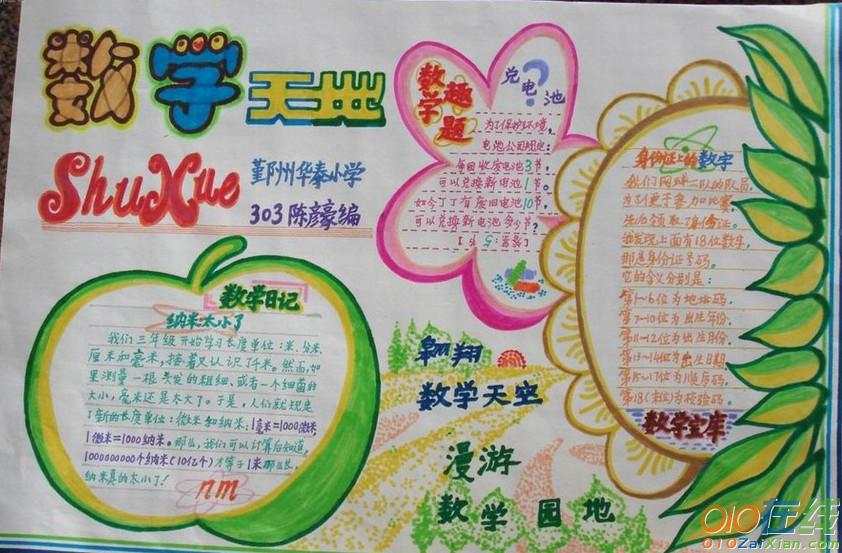 数学天地
ShuXue
鄞州华泰小学
303 陈彦豪编
数学趣题
兑电池
为了保护环境,
电池公司规定:
每回收废电池3节,
可以兑换新电池1节。
如今丁丁有废旧电池10节,
可以兑换新电池多少节?
[答案:5节]
身份证上的数字
我们网球二队的队员,
为了便于参加比赛,
先后领取了身份证。
我发现上面有18位数字,
那是身份证号码。
它的含义分别是:
第1-6位为地址码,
第7-10位为出生年份,
第11-12位为出生月份,
第13-14位为出生日期
第15-17位为顺序码,
第18(末)位为校验码。
数学宝库
数学日记
纳米太小了
我们三年级开始学习长度单位:米、分米、
厘米和毫米,接着又认识了千米。然而,如
果测量一根头发的粗细、或者一个细菌的
大小,毫米还是太大了。于是,人们就规定
了新的长度单位:微米和纳米:1毫米=1000微米,
1微米=1000纳米。那么,我们可以计算后知道,
1000000000个纳米(10亿个)才等于1米那么长,
纳米真的太小了!
nm
翱翔
数学天空
漫游
数学园地
010在线
010ZaiXian.com